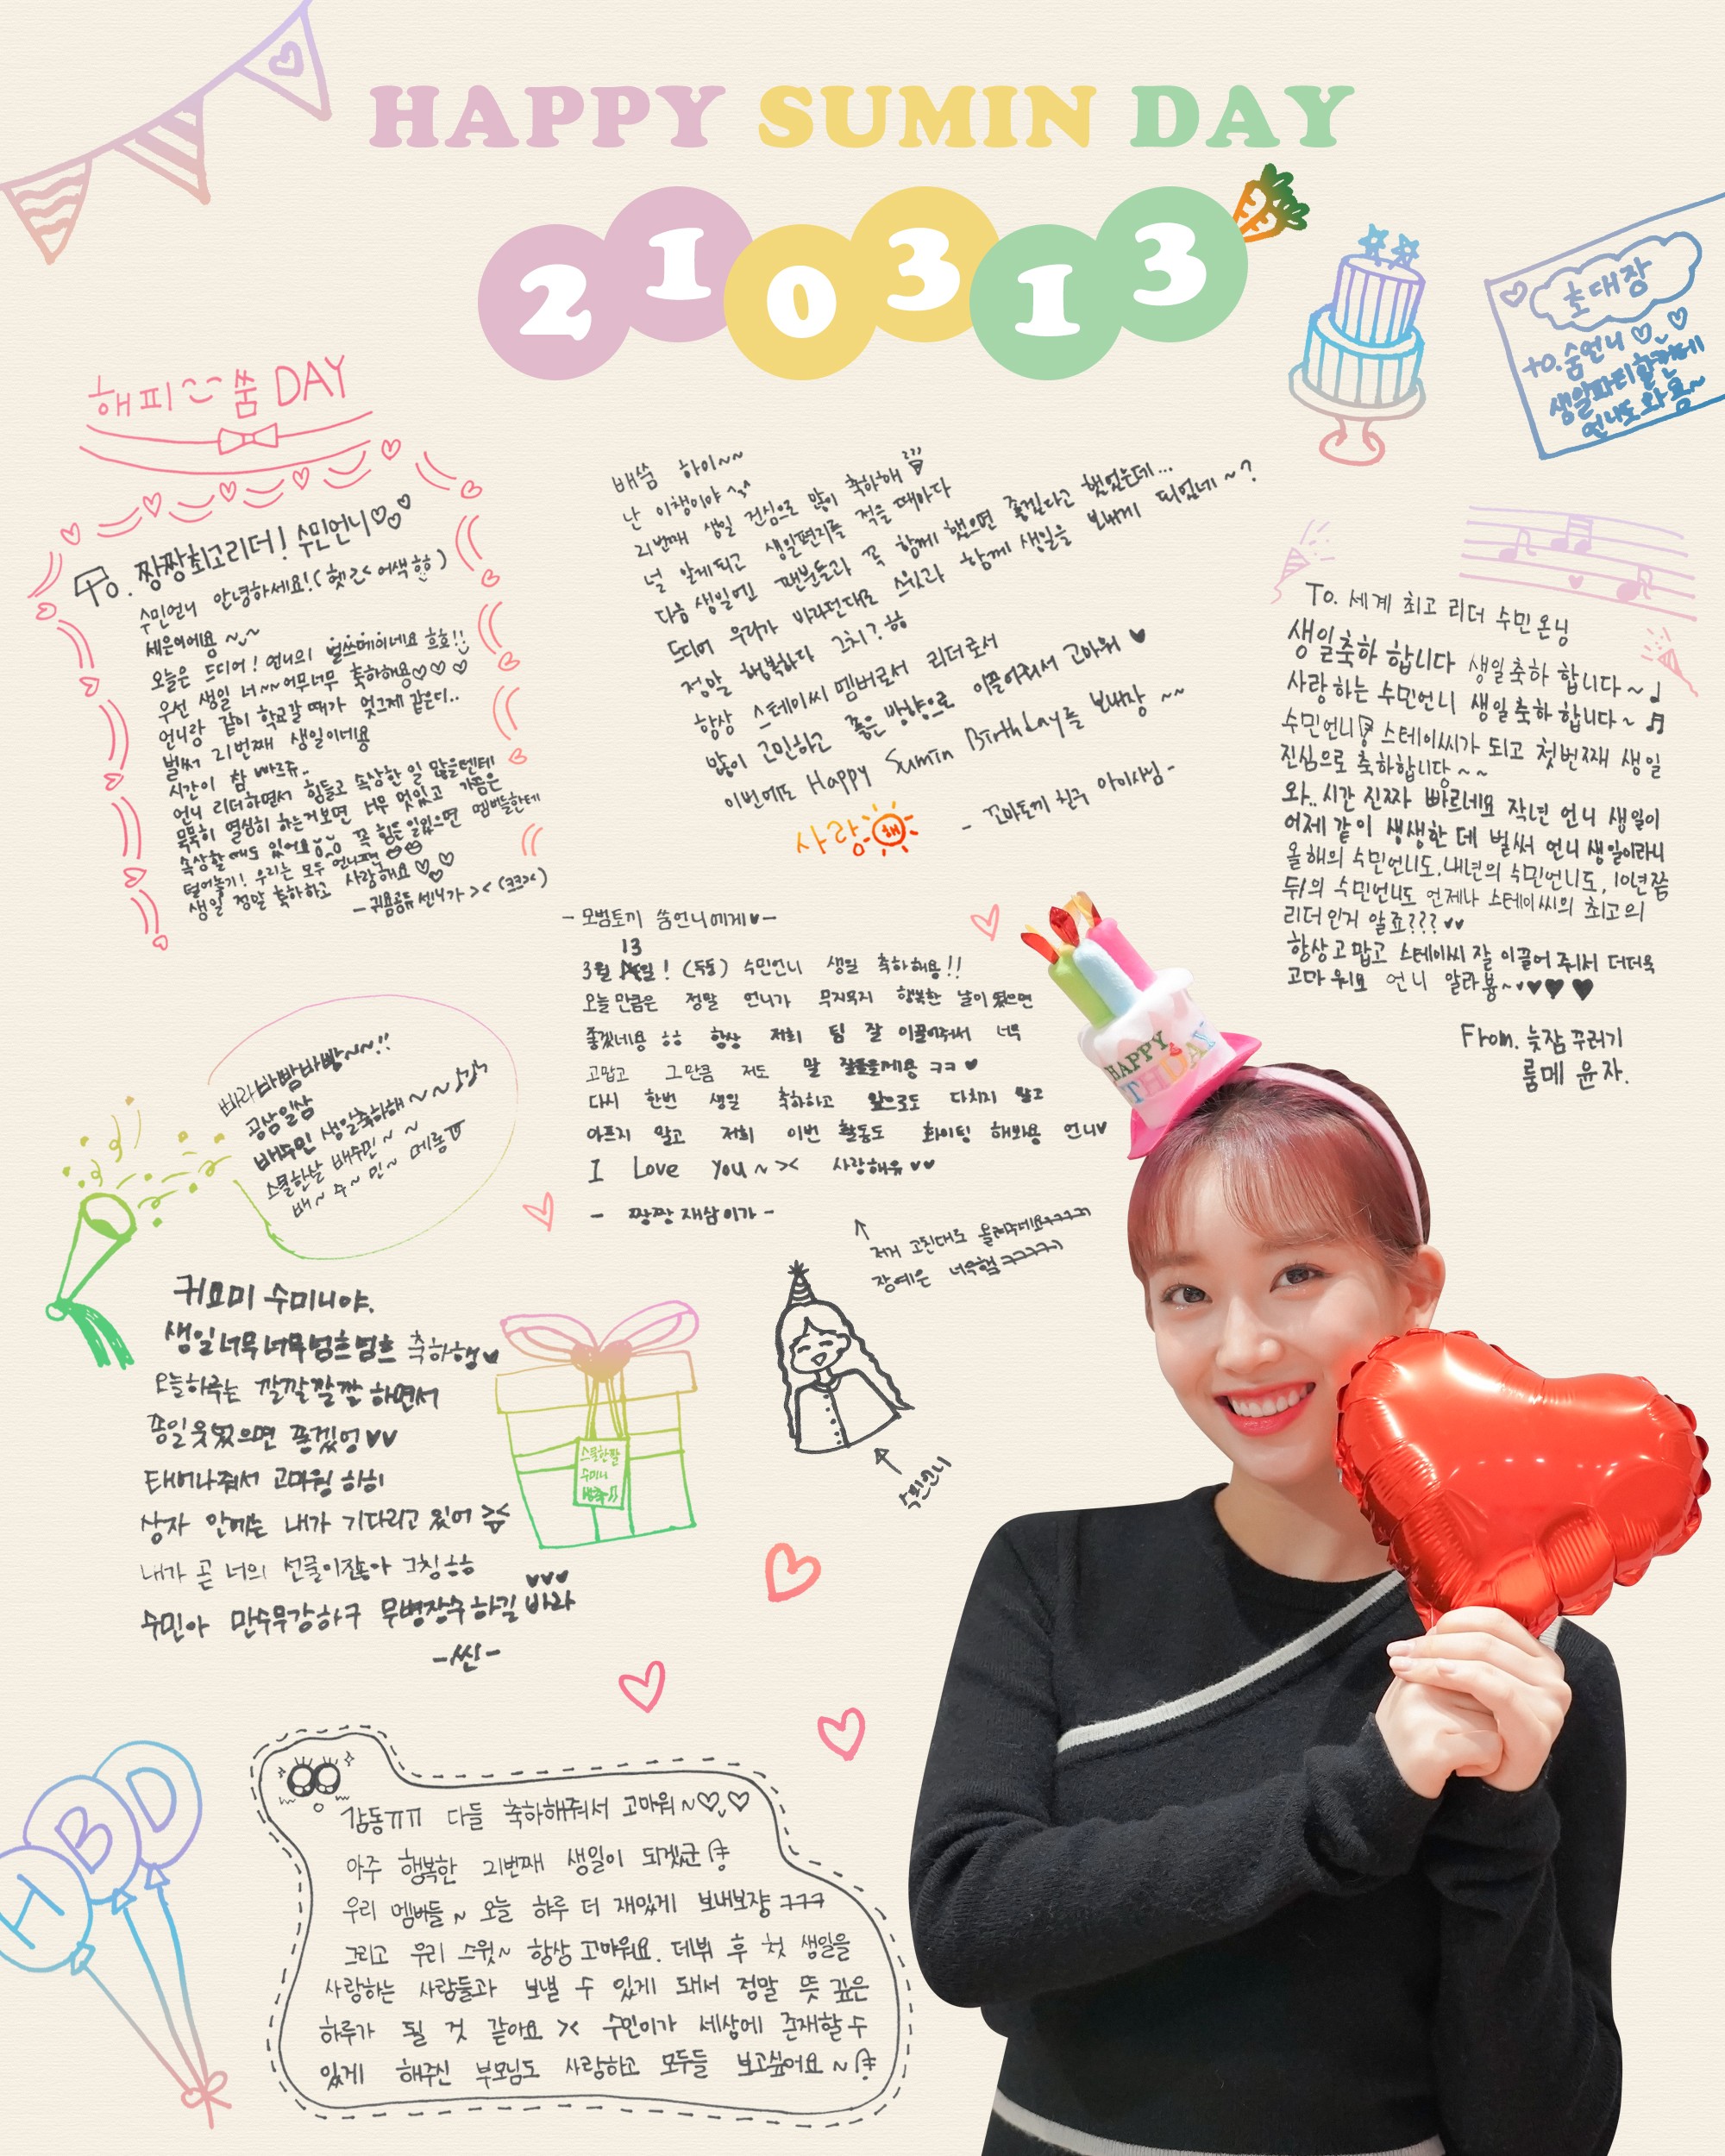 HAPPY SUMIN DAY
210313
초대장
to. 숨언니♡♡
생일파티할건데
언니도 와용~
해피 쑴 DAY
To. 짱짱최고리더! 수민언니♡♡♡
수민언니 안녕하세요! (헷 >< 어색ㅎㅎ)
세은이에용 ~
오늘은 드디어! 언니의 벌쓰데이네요 흐흐!!
우선 생일 너~~어무너무 축하해용♡♡♡
언니랑 같이 학교갈 때가 엊그제 같은디..
벌써 21번째 생일이네용
시간이 참 빠르쥬..
언니 리더하면서 힘들고 속상한 일 많을텐데
묵묵히 열심히 하는거보면 너무 멋있고 가끔은
속상할 때도 있어요 꼭 힘든 일있으면 멤버들한테
털어놓기! 우리는 모두 언니편
생일 정말 축하하고 사랑해요♡♡
- 귀욤공듀 센니가 >< (ㅋㅋ><)
배쑴 하이~~
난 이챙이야 ^3^
21번째 생일 진심으로 많이 축하해
널 알게되고 생일편지를 적을 때마다
다음 생일엔 팬분들과 꼭 함께 했으면 좋겠다고 했었는데...
드디어 우리가 바라던대로 스윗과 함께 생일을 보내게 되었네~?
정말 행복하다 그치? ㅎㅎ
항상 스테이씨 멤버로서 리더로서
많이 고민하고 좋은 방향으로 이끌어줘서 고마워 ♥
이번에도 Happy Sumin Birthday를 보내장 ~~
- 꼬마토끼 친구 아이사님-
사랑해
To. 세계 최고 리더 수민온닝
생일축하 합니다 생일축하 합니다~♩
사랑하는 수민언니 생일축하합니다~ ♬
수민언니 스테이씨가 되고 첫번째 생일
진심으로 축하합니당~~
와.. 시간 진짜 빠르네요 작년 언니 생일이
어제 같이 생생한 데 벌써 언니 생일이라니
올해의 수민언니도, 내년의 수민언니도, 10년쯤
뒤의 수민언니도 언제나 스테이씨의 최고의
리더인거 알죠??? ♥♥
항상고맙고 스테이씨 잘 이끌어 줘서 더더욱
고마워요 언니 알라뷰~♥♥♥
From. 늦잠꾸러기
룸메 윤자.
- 모범토끼 쑴언니에게♥-
13
3월 일! (두둥) 수민언니 생일 축하해용!!
오늘만큼은 정말 언니가 무지무지 행복한 날이었으면
좋겠네용 ㅎㅎ 항상 저희 팀 잘 이끌어줘서 너무
고맙고 그만큼 저도 말 잘들을게용 ㅋㅋ ♥
다시 한번 생일 축하하고 앞으로도 다치지 말고
아프지 말고 저희 이번 활동도 화이팅 해봐용 언니♥
I Love you ~ >< 사랑해유♥♥
- 짱짱 재삼이가 -
↑
저거 고친대로 올려주네요ㅋㅋㅋㅋ
장예은 너무햄ㅋㅋㅋㅋ
빠라바빰바빵~~!!
공삼일삼
배수민 생일축하해~~♪♪
스물한살 배수민~~
배~ 수~ 민~ 메롱
귀요미 수미니야.
생일너무너무넘흐넘흐 축하행♥
오늘하루는 깔깔깔깔 하면서
종일웃었으면 좋겠엉♥♥
태어나줘서 고마웡 히히
상자 안에는 내가 기다리고 있어
내가 곧 너의 선물이잖아 그칭ㅎㅎ
수민아 만수무강하구 무병장수하길 바라
♥♥♥
-씬-
스물한짤
수미니
생축!!
수민언니
감동ㅠㅠ 다들 축하해줘서 고마워~♡♡
아주 행복한 21번째 생일이 되겠군
우리 멤버들~ 오늘 하루 더 재밌게 보내보쟝 ㅋㅋㅋ
그리고 우리 스윗~ 항상 고마워요. 데뷔 후 첫 생일을
사랑하는 사람들과 보낼 수 있게 돼서 정말 뜻 깊은
하루가 될 것 같아요 >< 수민이가 세상에 존재할 수
있게 해주신 부모님도 사랑하고 모두들 보고싶어요~
HAPPY
BIRTHDAY
HBD